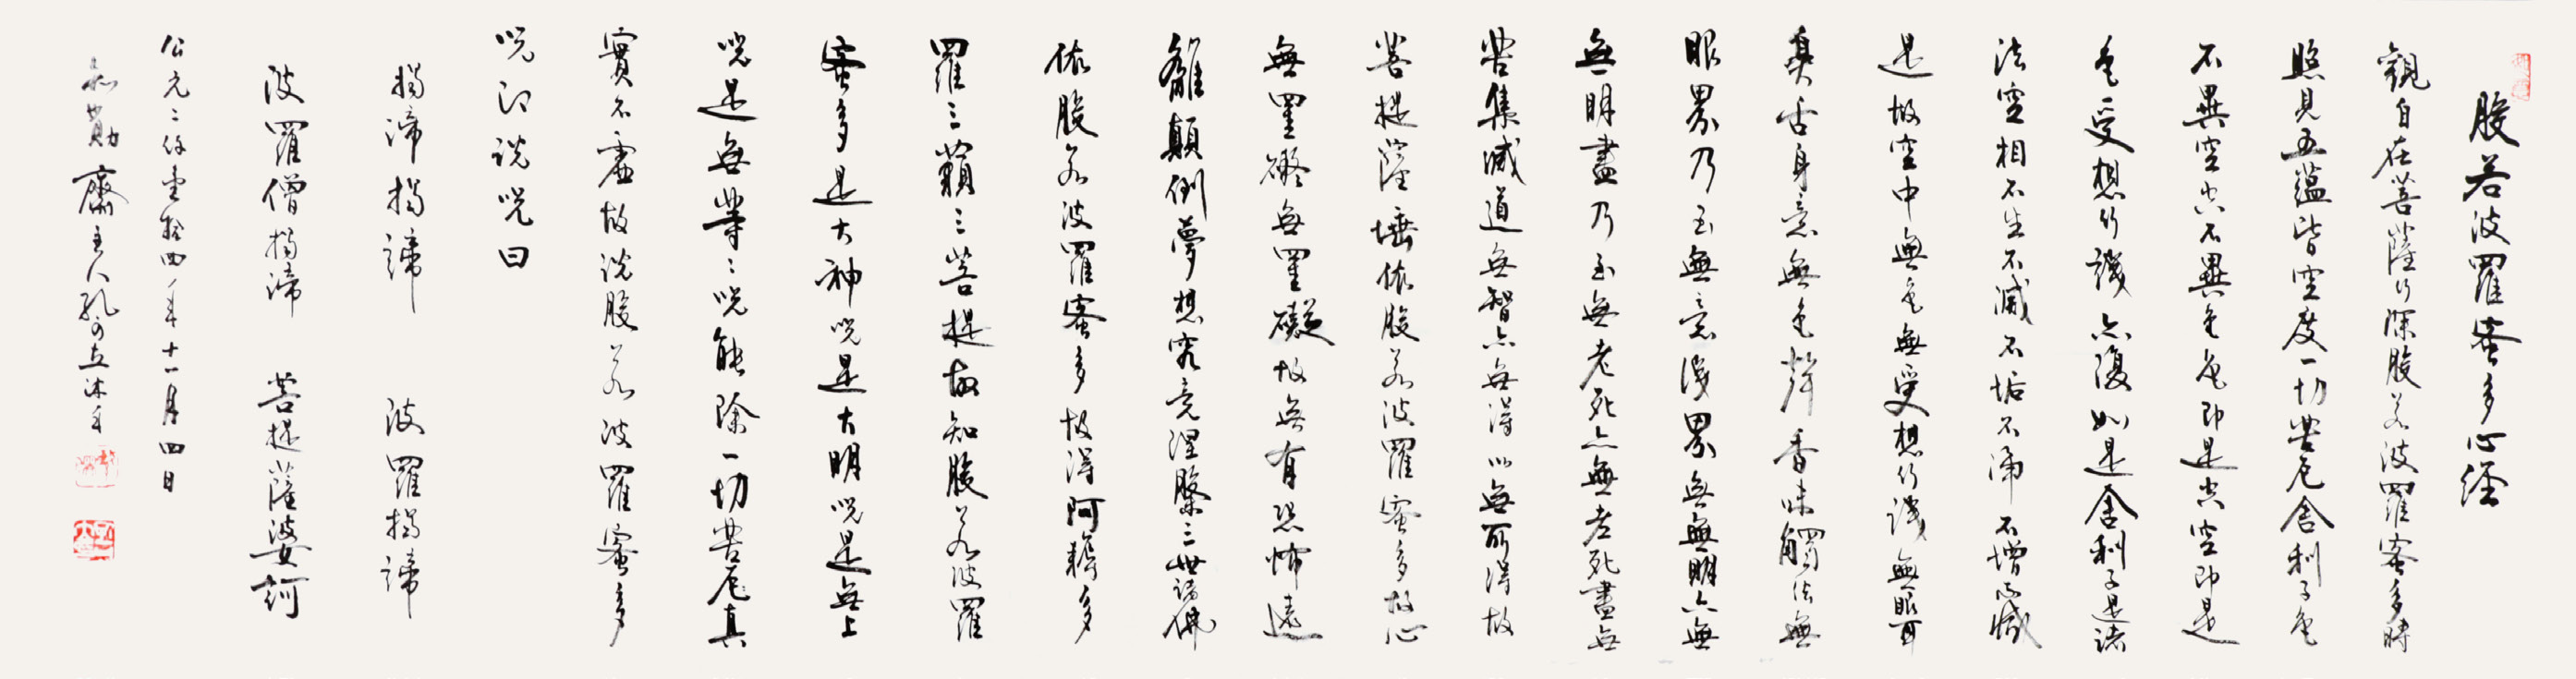 般若波羅蜜多心經
觀自在菩薩行深般若波羅蜜多時
照見五蘊皆空度一切苦厄舍利子色
不異空空不異色色即是空空即是
色受想行識亦復如是舍利子是諸
法空相不生不滅不垢不淨不增不減
是故空中無色無受想行識無眼耳
鼻舌身意無色聲香味觸法無
眼界乃至無意識界無無明亦無
無明盡乃至無老死亦無老死盡無
苦集滅道無智亦無得以無所得故
菩提薩埵依般若波羅蜜多故心
無罣礙無罣礙故無有恐怖遠
離顛倒夢想究竟涅槃三世諸佛
依般若波羅蜜多故得阿耨多
羅三藐三菩提故知般若波羅
蜜多是大神咒是大明咒是無上
咒是無等等咒能除一切苦厄真
實不虛故說般若波羅蜜多
咒即說咒曰
揭諦揭諦 波羅揭諦
波羅僧揭諦 菩提薩婆訶
公元二仟壹拾四年十一月四日
齋主人孔可立沐手